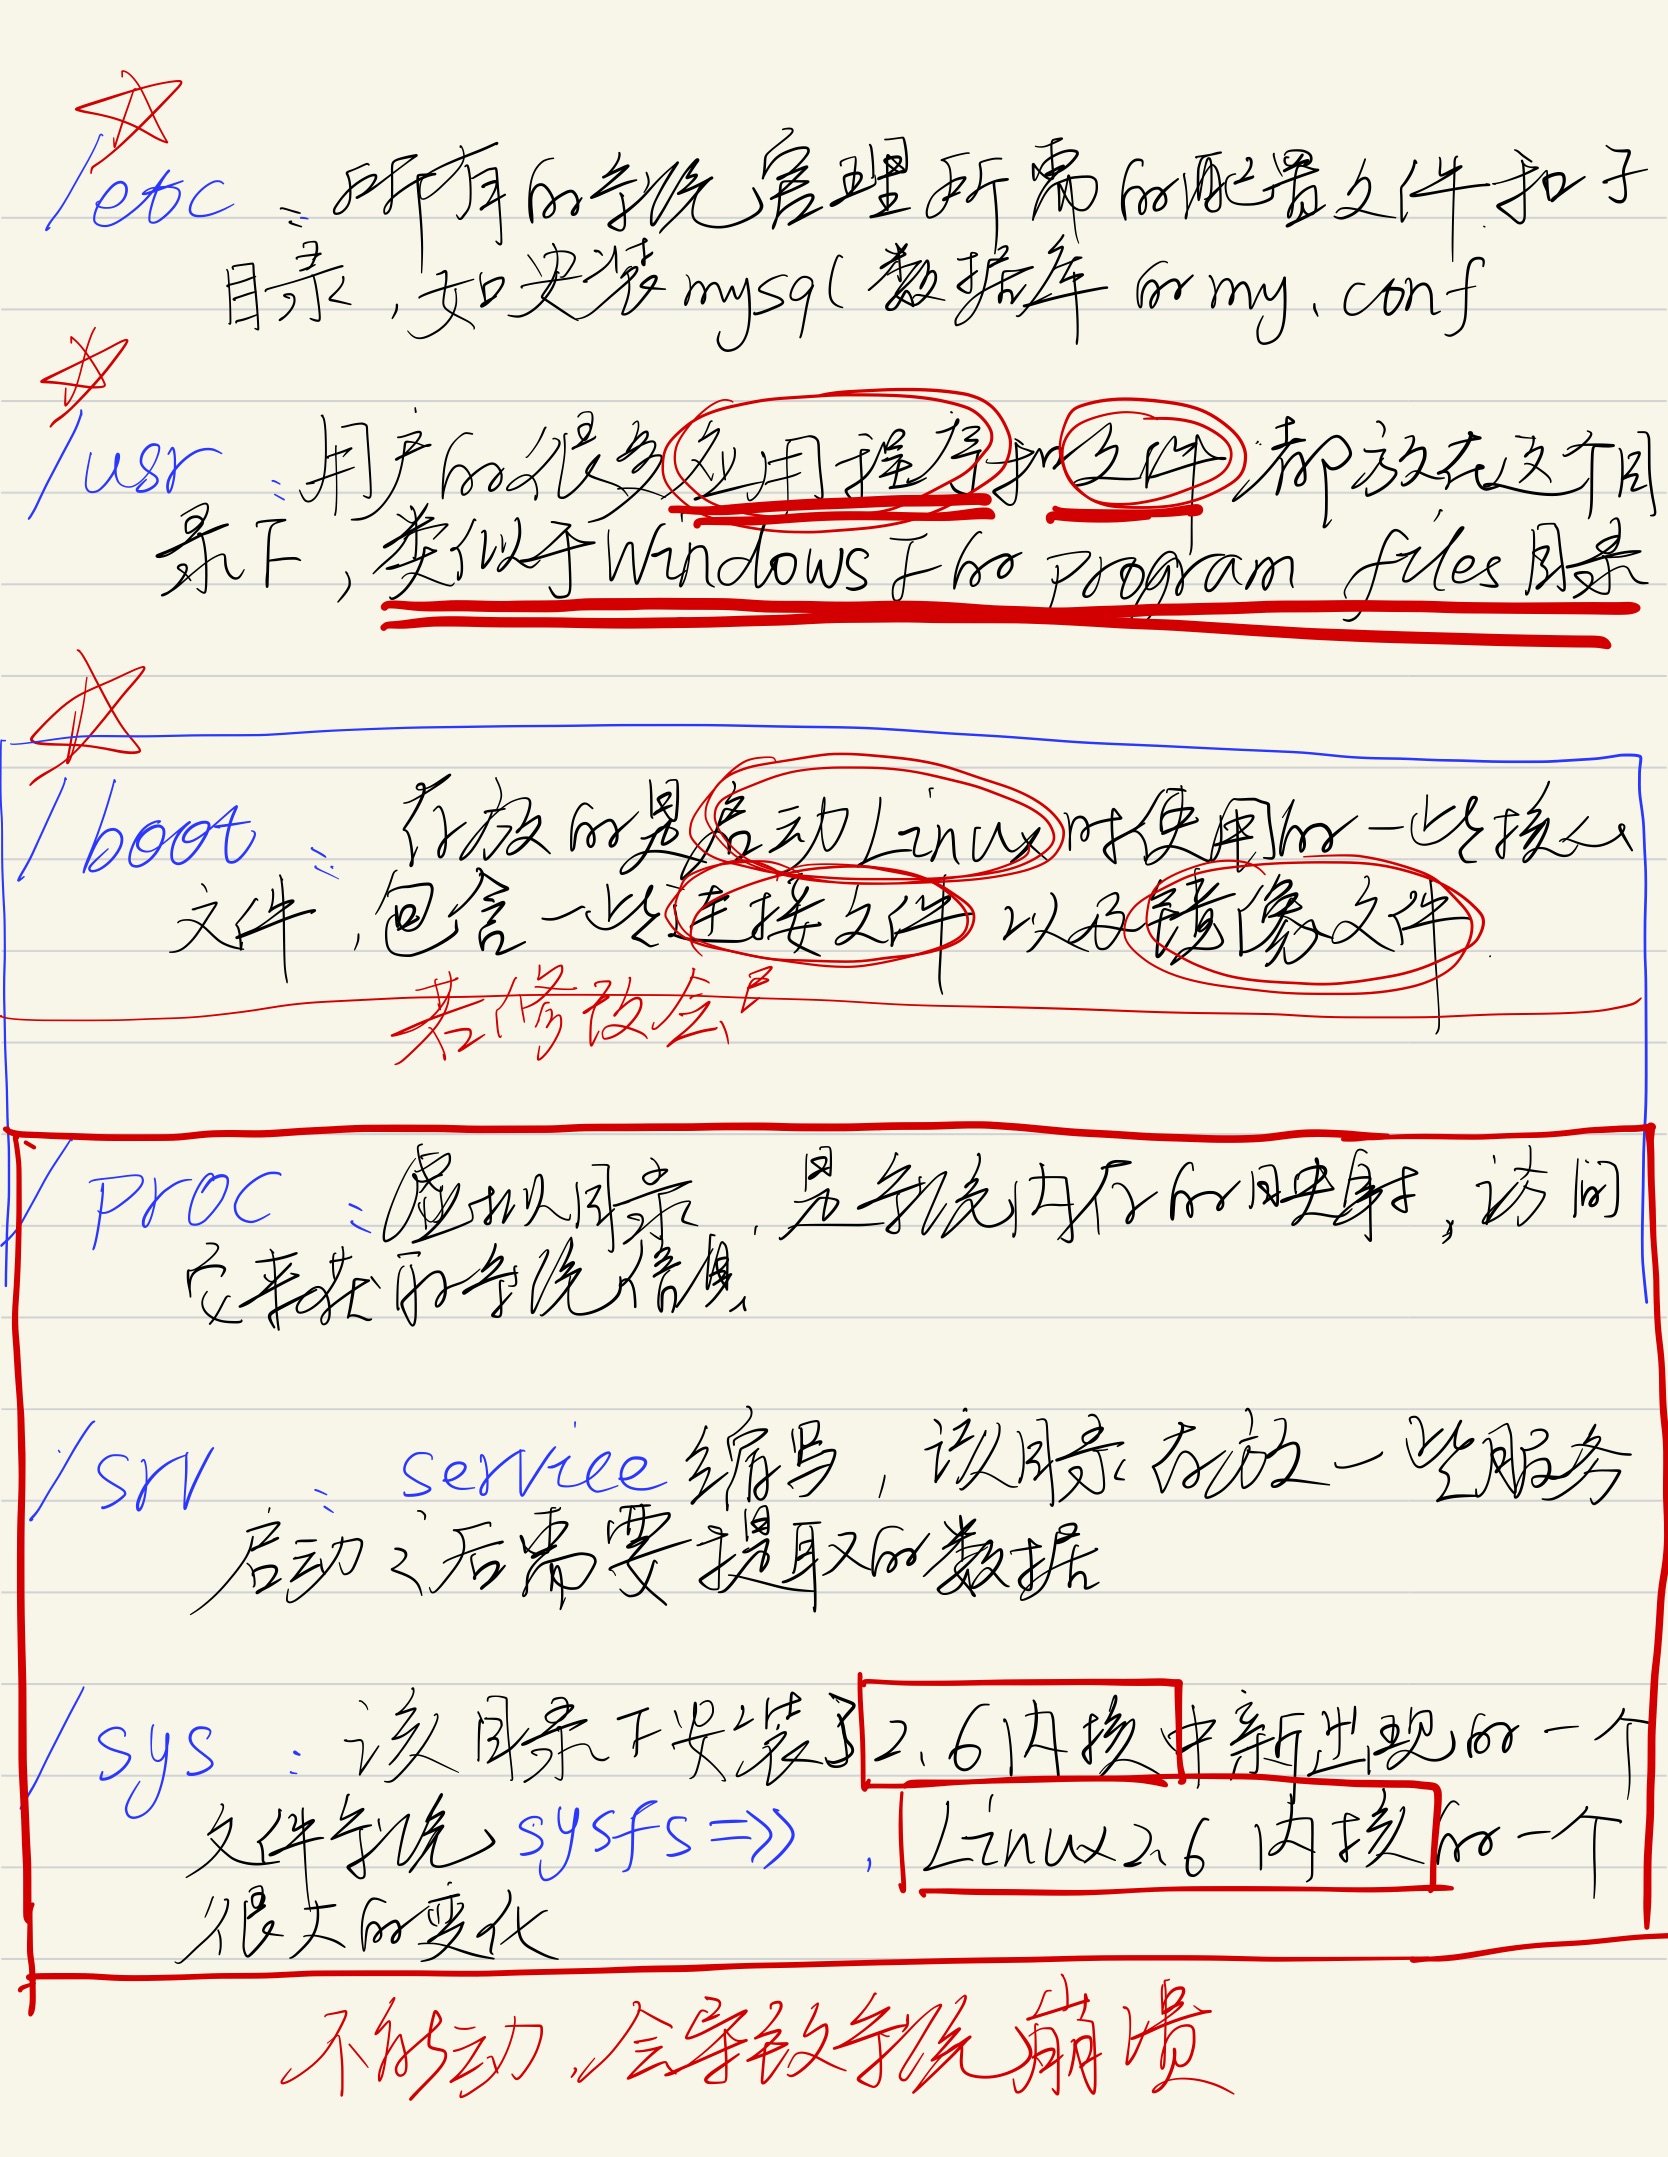 /etc : 所有的系统管理所需的配置文件和子
目录,如安装mysql数据库的my.conf
/usr : 用户的很多应用程序和文件都放在这个目
录下,类似于Windows下的program files目录
/boot : 存放的是启动Linux时使用的一些核心
文件,包含一些连接文件以及镜像文件
若修改会
/proc : 虚拟目录,是系统内存的映射,访问
它来获取系统信息
/srv : service缩写,该目录存放一些服务
启动之后需要提取的数据
/sys : 该目录下安装了2.6内核中新出现的一个
文件系统sysfs =>> , Linux2.6内核的一个
很大的变化
不能动,会导致系统崩溃